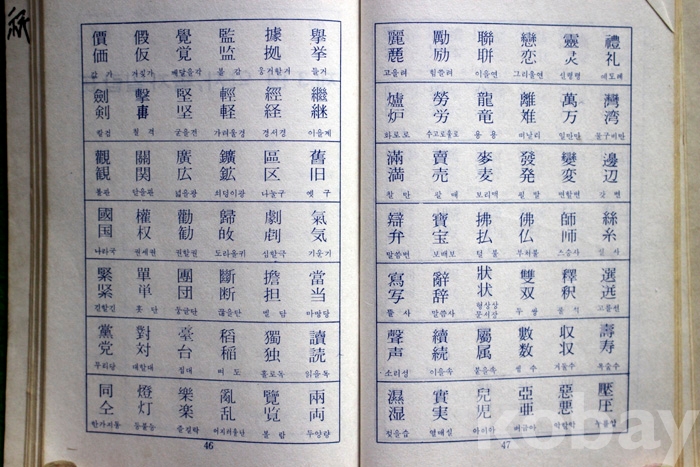 紙
價 假 覺 監 據 擧
価 仮 覚 监 拠 挙
값가 거짓가 깨달을각 볼감 웅거할거 들거
劍 擊 堅 輕 經 繼
剣 坚 軽 経 継
칼검 칠격 굳을견 가벼울경 경서경 이을계
觀 關 廣 鑛 區 舊
観 関 広 鉱 区 旧
볼관 넓을광 쇠덩이광 나눌구 옛구
國 權 勸 歸 劇 氣
国 权 勧 気
나라국 권세권 권할권 도라올귀 심할극 기운기
緊 單 團 斷 擔 當
紧 単 団 断 担 当
긴할긴 홋단 둥글단 끊을단 멜담 마땅당
黨 對 臺 稻 獨 讀
党 対 台 稲 独 読
무리당 대할대 집대 벼도 홀로독 읽을독
同 燈 樂 亂 覽 兩
仝 灯 楽 乱 覧 両
한가지동 등불등 즐길락 어지러울란 볼람 두양량
46
麗 勵 聯 戀 靈 禮
励 恋 灵 礼
고을려 힘쓸려 이을연 그리울연 신령령 예도례
爐 勞 龍 離 萬 灣
炉 労 竜 万 湾
화로로 수고로울로 용용 떠날리 일만만 물구비만
滿 賣 麥 發 變 邊
満 売 麦 発 変 辺
찰만 팔매 보리맥 필발 변할변 갓변
辯 寶 拂 佛 師 絲
弁 宝 払 仏 糸
말씀변 보배보 떨불 부처불 스승사 실사
寫 辭 狀 雙 釋 選
写 辞 状 双 釈
쓸사 말씀사 형상상 두쌍 풀석 고를선
문서장
聲 續 屬 數 收 壽
声 続 属 数 収 寿
소리성 이을속 붙을속 셀수 거둘수 목숨수
濕 實 兒 亞 惡 壓
湿 実 児 亜 悪 圧
젖을습 열매실 아이아 버금아 악할악 누를압
47
kobay